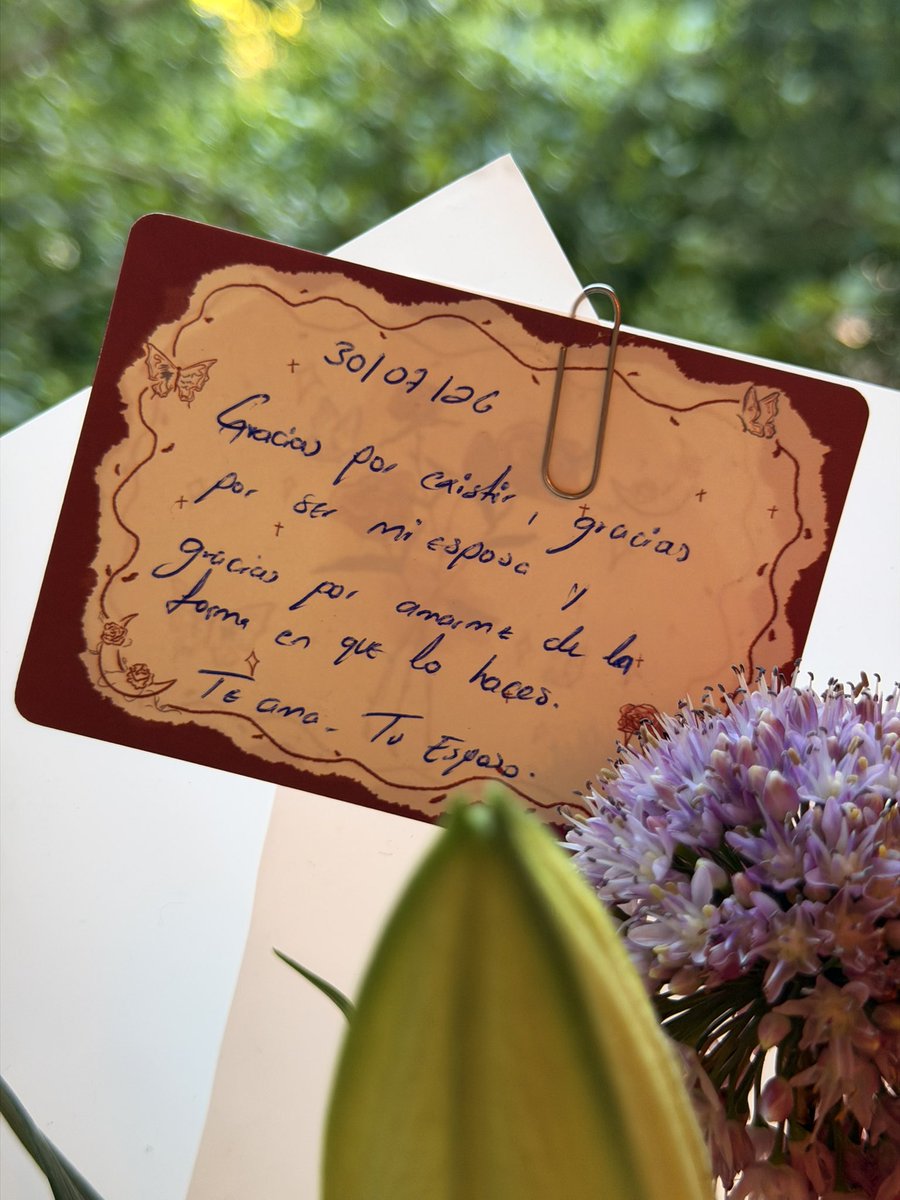 30/07/26
Gracias por existir, gracias
por ser mi esposa y
gracias por amarme de la
forma en que lo haces.
Te ama. Tu Esposo.